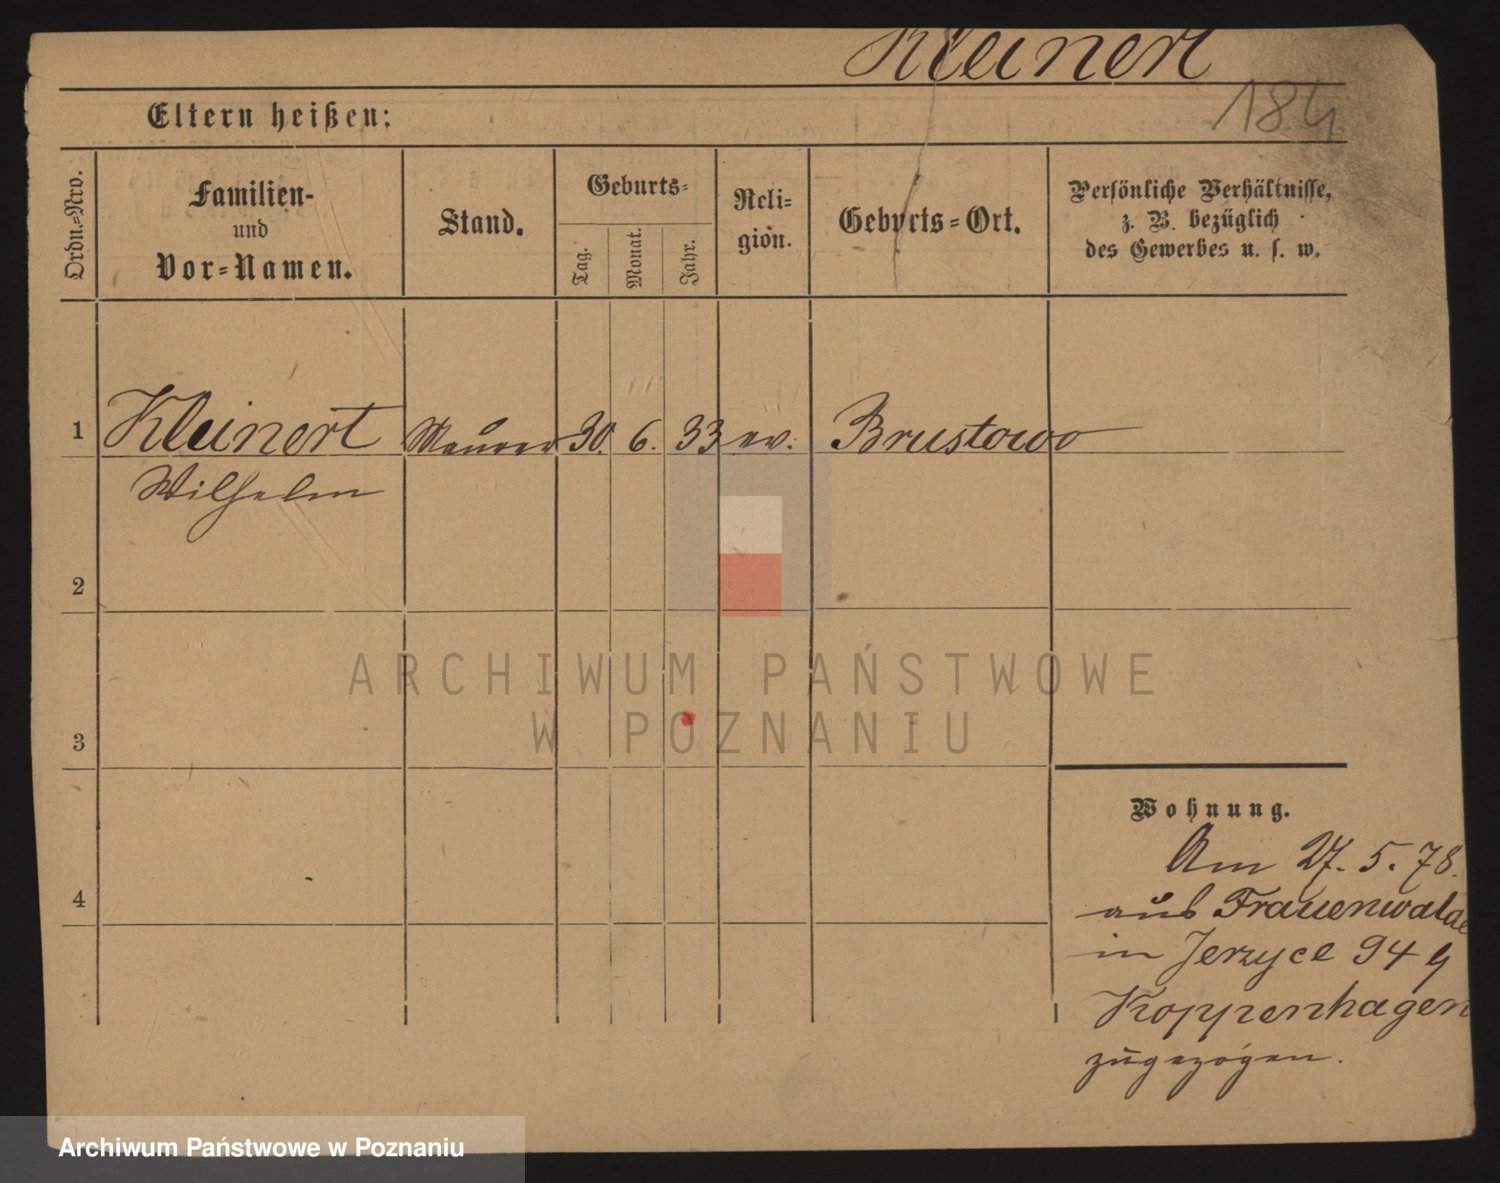 Kleinert
184
Eltern heißen:
Ordn.-Nro.
Familien-
und
Vor-Namen.
Stand.
Geburts-
Tag.
Monat.
Jahr.
Reli-
gion.
Geburts-Ort.
Persönliche Verhältnisse,
z. B. bezüglich
des Gewerbes u. s. w.
1 Kleinert Maurer 30. 6. 33 ev. Brustowo
Wilhelm
2
ARCHIWUM PAŃSTWOWE
W POZNANIU
3
Wohnung.
Am 27. 5. 78.
aus Frauenwalde
4
in Jerzyce 94
Koppenhagen
zugezogen.
Archiwum Państwowe w Poznaniu